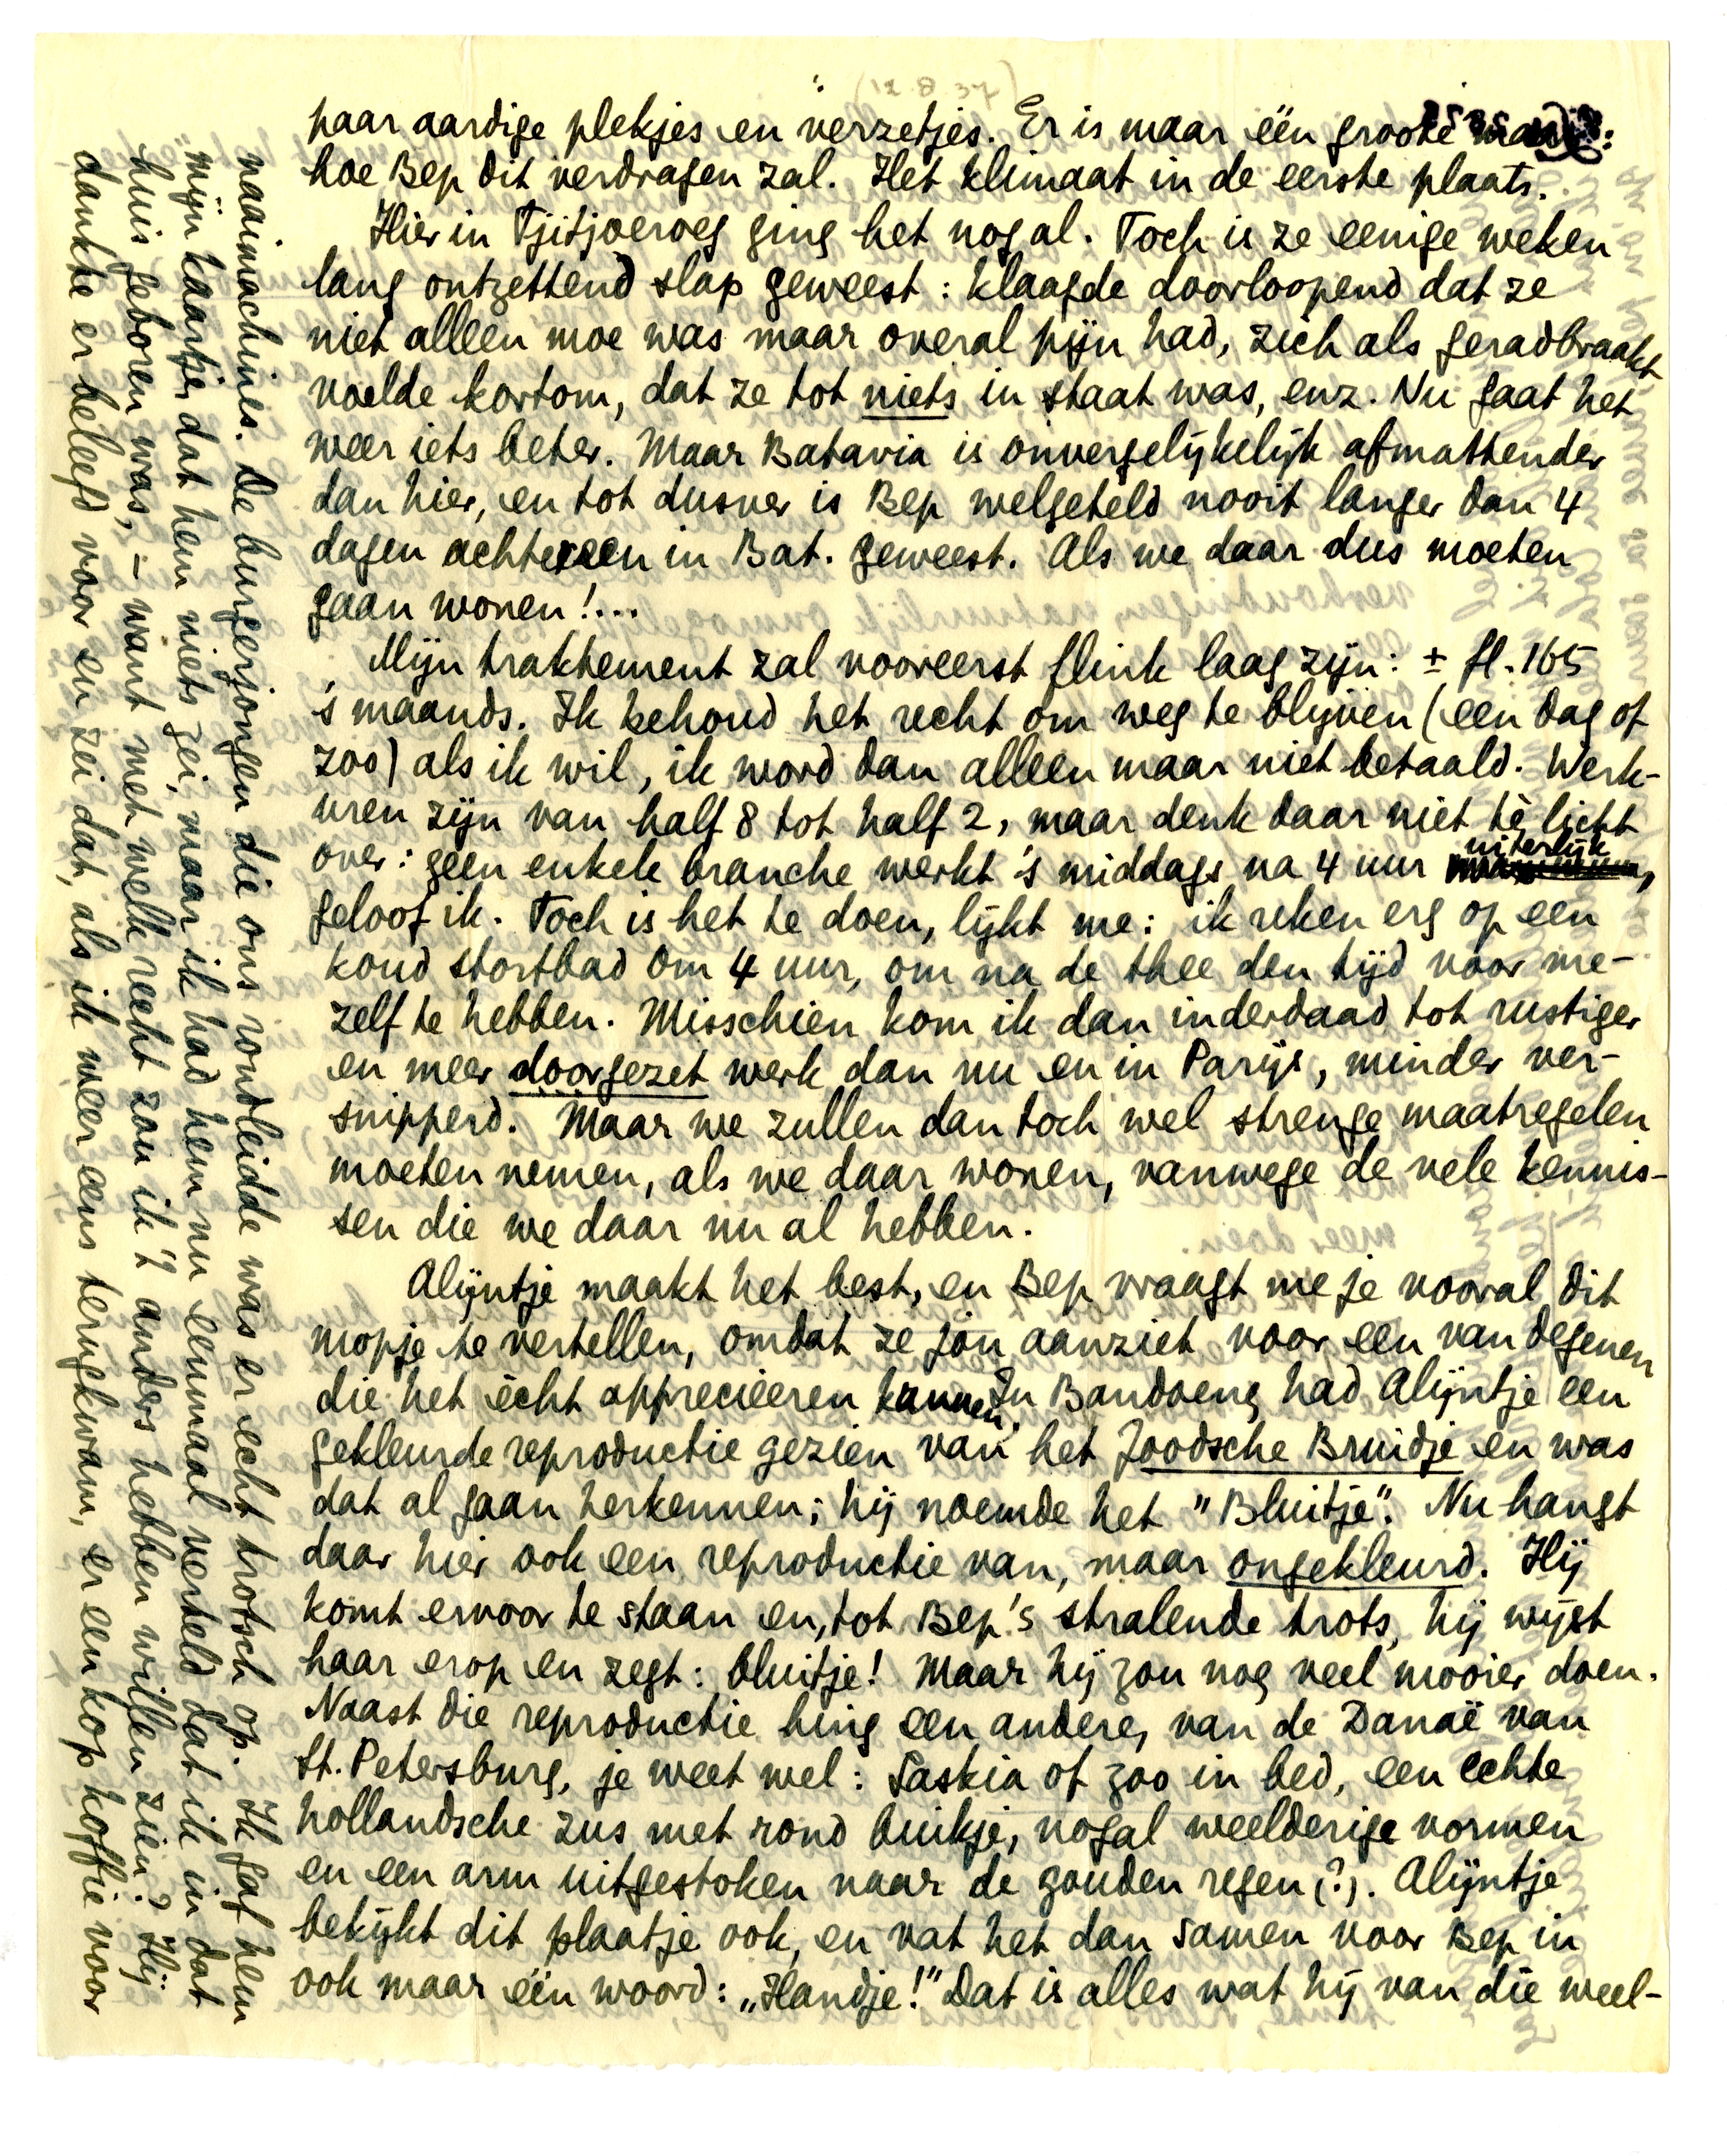 (12.8.37)
paar aardige plekjes en verzetjes. Er is maar één groote maar:
hoe Bep dit verdragen zal. Het klimaat in de eerste plaats.
Hier in Tjitjoeroeg ging het nogal. Toch is ze eenige weken
lang ontzettend slap geweest: klaagde doorloopend dat ze
niet alleen moe was maar overal pijn had, zich als geradbraakt
voelde kortom, dat ze tot niets in staat was, enz. Nu gaat het
weer iets beter. Maar Batavia is onvergelijkelijk afmattender
dan hier, en tot dusver is Bep welgeteld nooit langer dan 4
dagen achtereen in Bat. geweest. Als we daar dus moeten
gaan wonen!...
Mijn traktement zal vooreerst flink laag zijn: ± fl. 165
's maands. Ik behoud het recht om weg te blijven (een dag of
zoo) als ik wil, ik word dan alleen maar niet betaald. Werk-
uren zijn van half 8 tot half 2, maar denk daar niet tè licht
over: geen enkele branche werkt 's middags na 4 uur uiterlijk,
geloof ik. Toch is het te doen, lijkt me: ik reken erg op een
koud stortbad om 4 uur, om na de thee den tijd voor me-
zelf te hebben. Misschien kom ik dan inderdaad tot rustiger
en meer doorgezet werk dan nu en in Parijs, minder ver-
snipperd. Maar we zullen dan toch wel strenge maatregelen
moeten nemen, als we daar wonen, vanwege de vele kennis-
sen die we daar nu al hebben.
Alijntje maakt het best, en Bep vraagt me je vooral dit
mopje te vertellen, omdat ze jou aanziet voor een van degenen
die het ècht apprecieeren kunnen. In Bandoeng had Alijntje een
gekleurde reproductie gezien van het Joodsche Bruidje en was
dat al gaan herkennen; hij noemde het "Bluitje". Nu hangt
daar hier ook een reproductie van, maar ongekleurd. Hij
komt ervoor te staan en, tot Bep's stralende trots, hij wijst
haar erop en zegt: bluitje! Maar hij zou nog veel mooier doen.
Naast die reproductie hing een andere, van de Danaë van
St. Petersburg, je weet wel: Saskia of zoo in bed, een echte
hollandsche zus met rond buikje, nogal weelderige vormen
en een arm uitgestoken naar de gouden regen (?). Alijntje
bekijkt dit plaatje ook, en vat het dan samen voor Bep in
ook maar één woord: „Handje!" Dat is alles wat hij van die weel-
naaimachines. De burgerjongen die ons rondleidde was er echt trotsch op. Ik gaf hem
mijn kaartje, dat hem niets zei, maar ik had hem nu eenmaal verteld dat ik in dat
huis geboren was, – want met welk recht zou ik 't anders hebben willen zien? Hij
dankte er beleefd voor en zei dat, als ik weer eens terugkwam, er een kop koffie voor